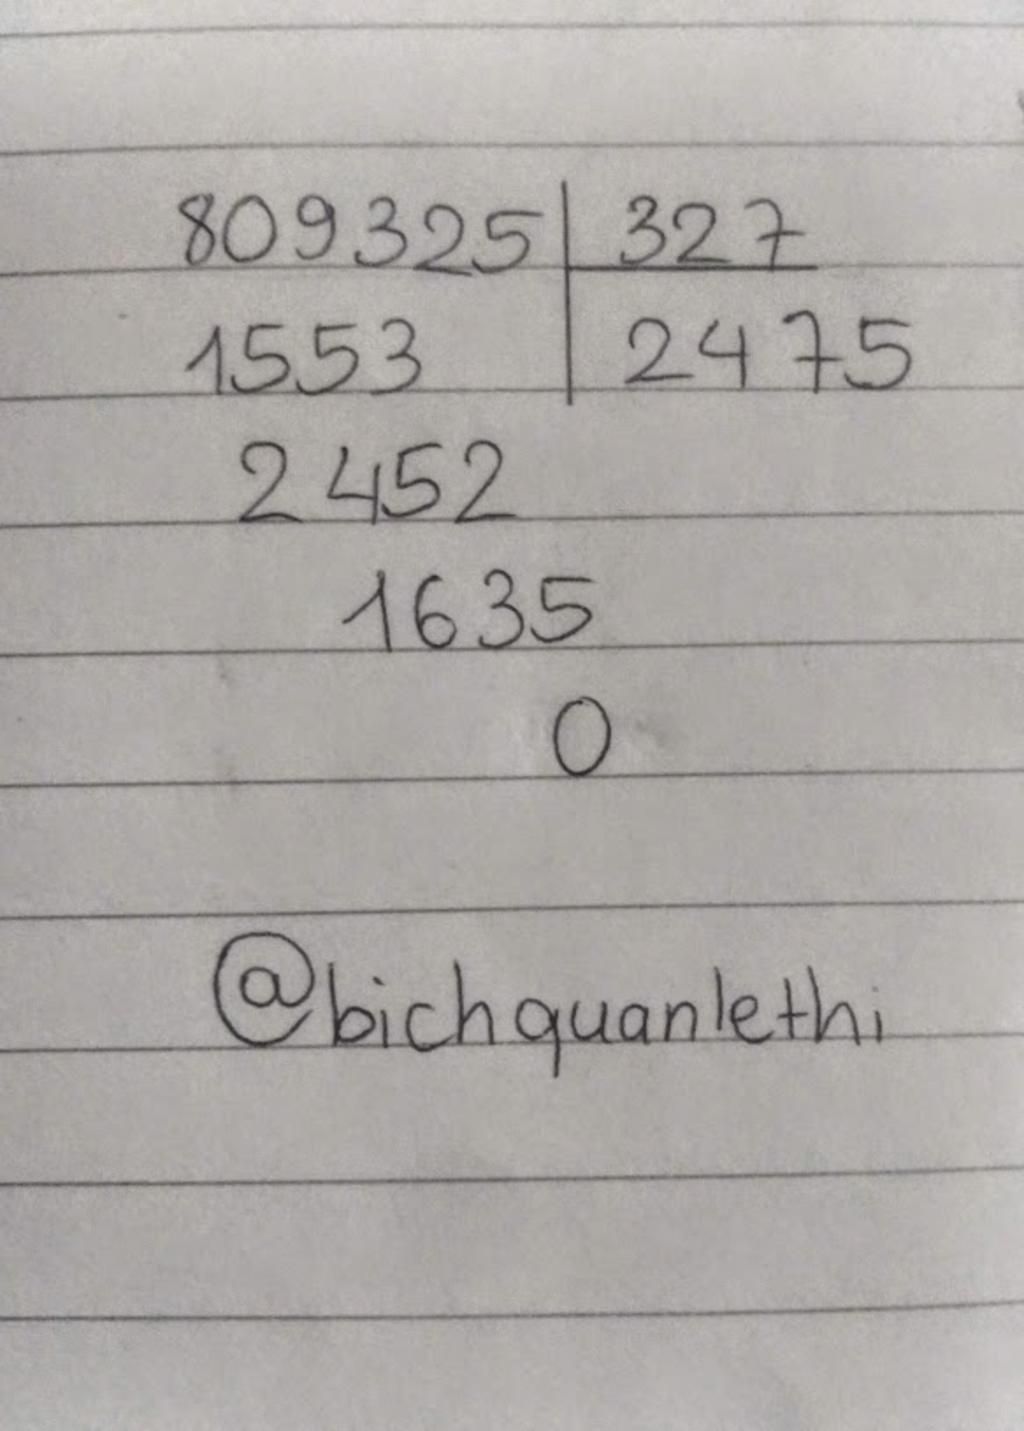 809325 327
1553 2475
2452
1635
0
@bichquanlethi